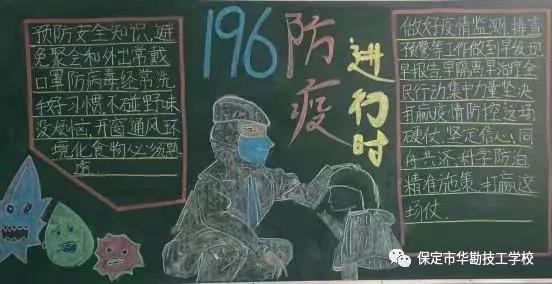 预防安全知识,避
免聚会和外出常戴
口罩防病毒经常洗
手好习惯,不碰野味
没烦恼,开窗通风环
境化食物必须熟
透.
196防疫
进行时
做好疫情监测,排查
预警等工作做到早发现
早报告,早隔离早治疗全
民行动集中力量坚决
打赢疫情防控这场
硬仗,坚定信心,同
舟共济,科学防治
精准施集,打赢这
场仗.
保定市华勘技工学校